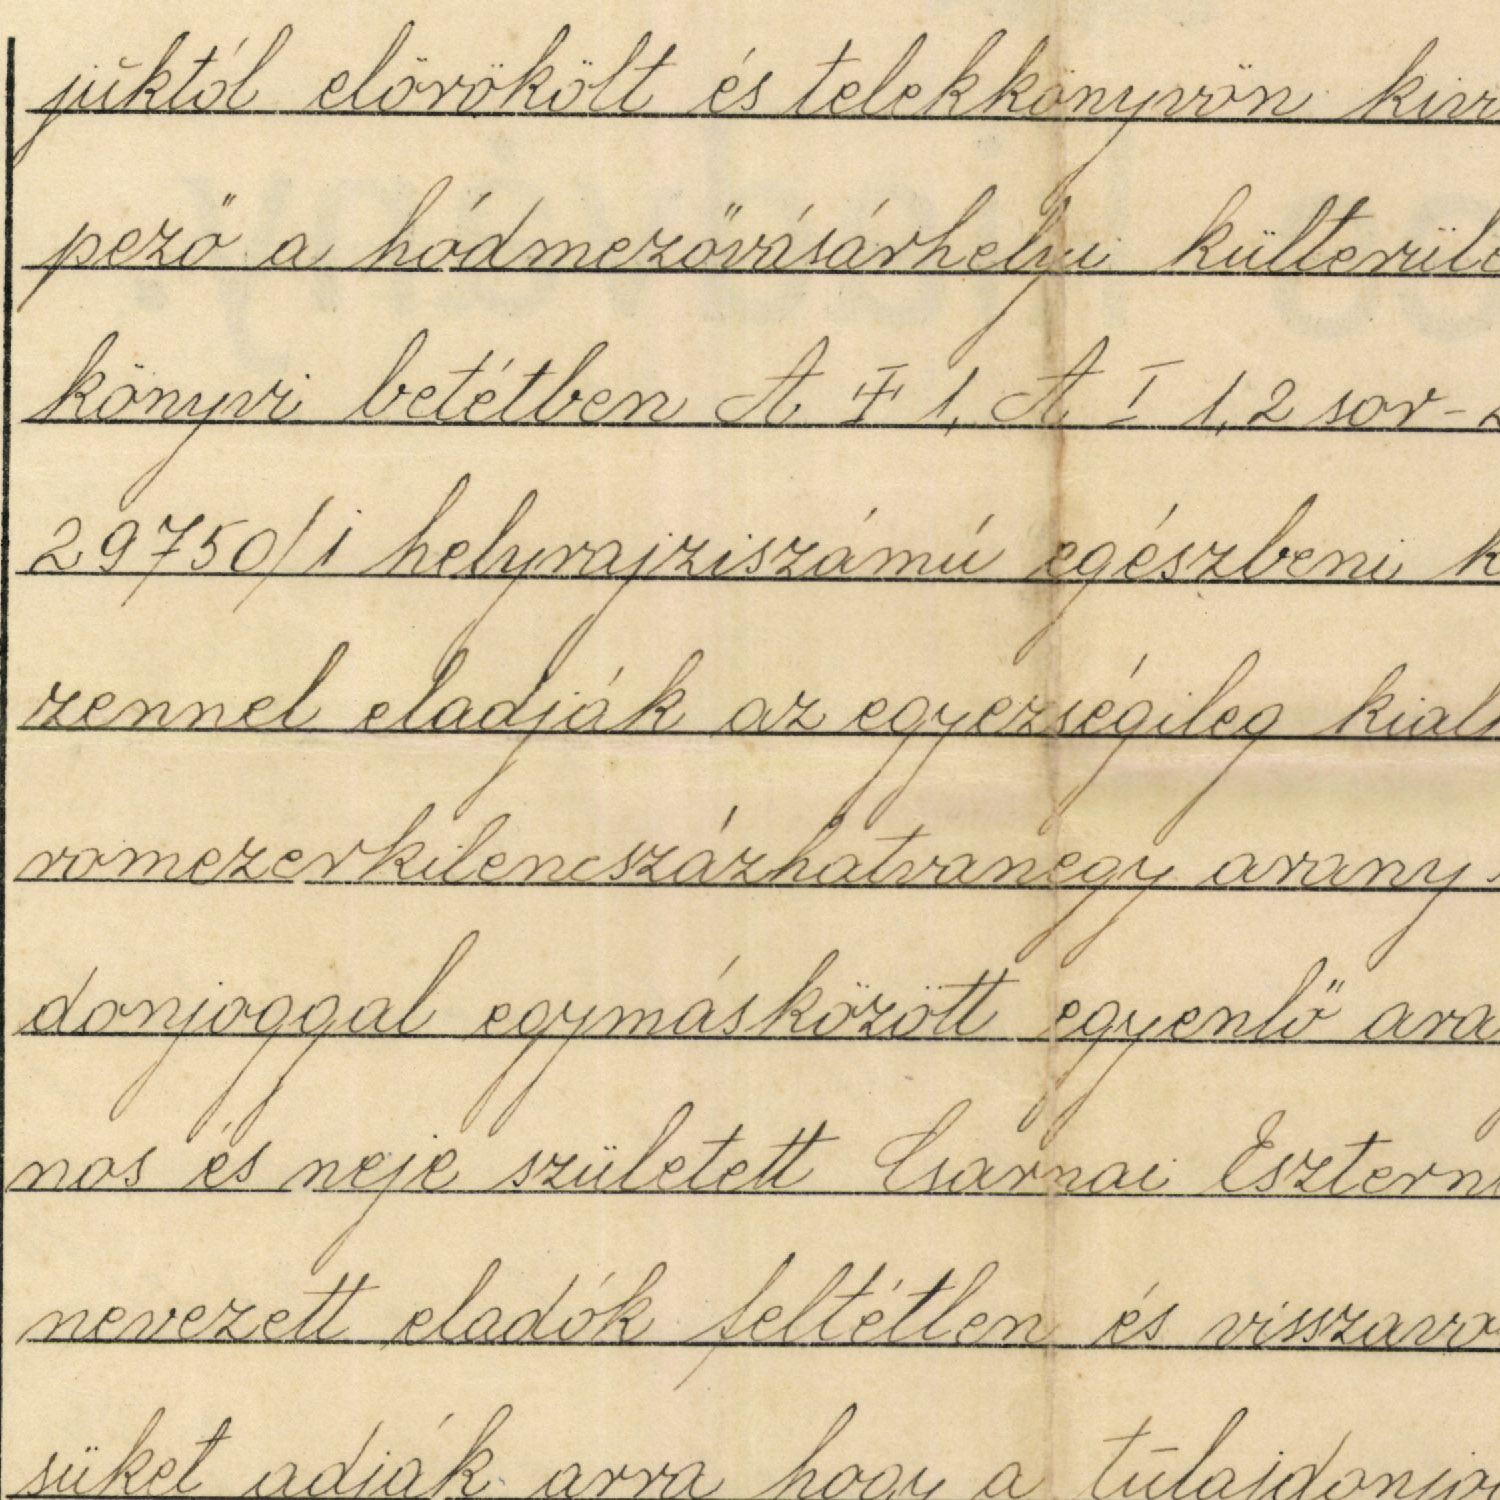 juktól elörökölt és telekkönyvön kivü
pező a hódmezővásárhelyi külterüle
könyvi betétben A I 1, A I 1,2 sor-
29750/1 helyrajziszámú egészbeni k
zennel eladják az egyezségileg kial
romezerkilencszázhatvanegy arany
donjoggal egymásközött egyenlő ara
nos és neje született Csarnai Esztern
nevezett eladók feltétlen és visszavo
süket adják arra hogy a tulajdonjo